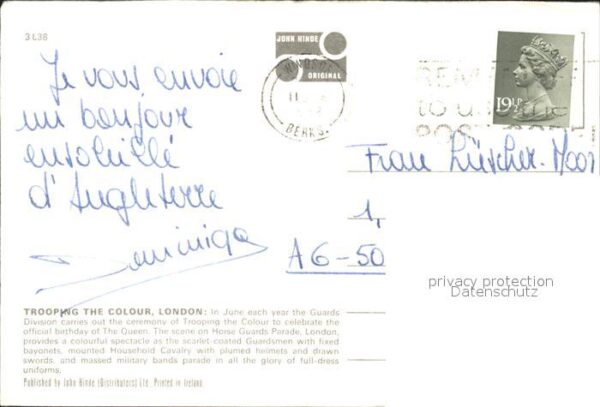 3L36
JOHN HINDE
ORIGINAL
WINDSOR
BERKS.
19½P
to use the
POSTCODE
Je vous envoie
un bonjour
ensoleillé
d'Angleterre
Dominique
Frau Lüscher-Moor
1,
A6-50
privacy protection
Datenschutz
TROOPING THE COLOUR, LONDON: In June each year the Guards
Division carries out the ceremony of Trooping the Colour to celebrate the
official birthday of The Queen. The scene on Horse Guards Parade, London,
provides a colourful spectacle as the scarlet-coated Guardsmen with fixed
bayonets, mounted Household Cavalry with plumed helmets and drawn
swords, and massed military bands parade in all the glory of full-dress
uniforms.
Published by John Hinde (Distributors) Ltd. Printed in Ireland.